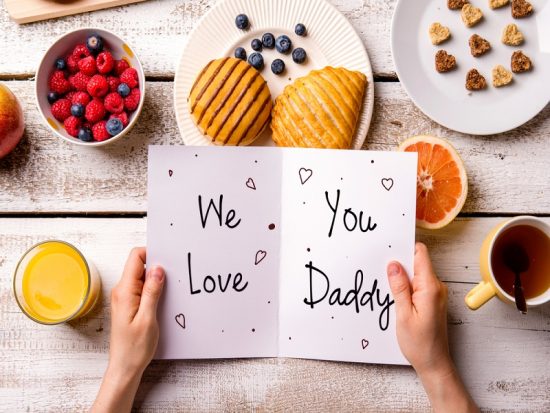 We
Love
You
Daddy